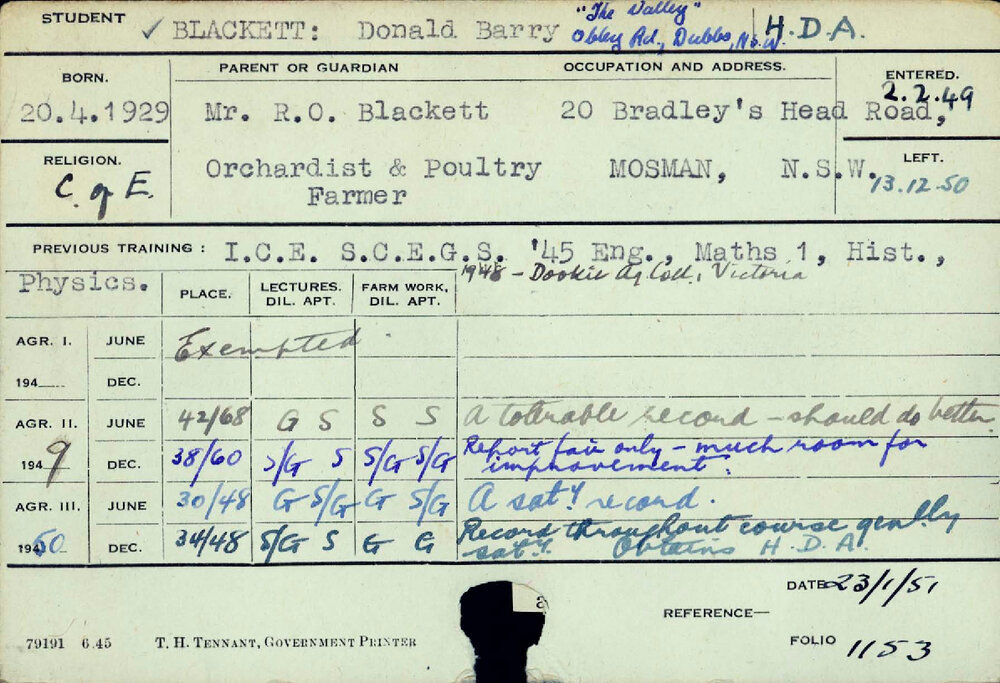 STUDENT ✓ BLACKETT: Donald Barry "The Valley" H.D.A.
Obley Rd., Dubbo, N.S.W.
BORN. PARENT OR GUARDIAN OCCUPATION AND ADDRESS. ENTERED.
20.4.1929 Mr. R.O. Blackett 20 Bradley's Head Road, 2.2.49
RELIGION. Orchardist & Poultry MOSMAN, N.S.W. LEFT.
C. of E. Farmer 13.12.50
PREVIOUS TRAINING: I.C.E. S.C.E.G.S. '45 Eng., Maths 1, Hist.,
Physics. 1948 - Dookie Ag Coll, Victoria
PLACE. LECTURES. FARM WORK,
DIL. APT. DIL. APT.
AGR. I. JUNE Exempted.
194 DEC.
AGR. II. JUNE 42/68 G S S S A tolerable record - should do better
1949 DEC. 38/60 S/G S S/G S/G Report fair only - much room for
improvement.
AGR. III. JUNE 30/48 G S/G G S/G A saty record.
1950 DEC. 34/48 S/G S G G Record throughout course genlly
saty. Obtains H.D.A.
DATE 23/1/51
REFERENCE—
79191 6.45 T. H. TENNANT, GOVERNMENT PRINTER FOLIO 1153